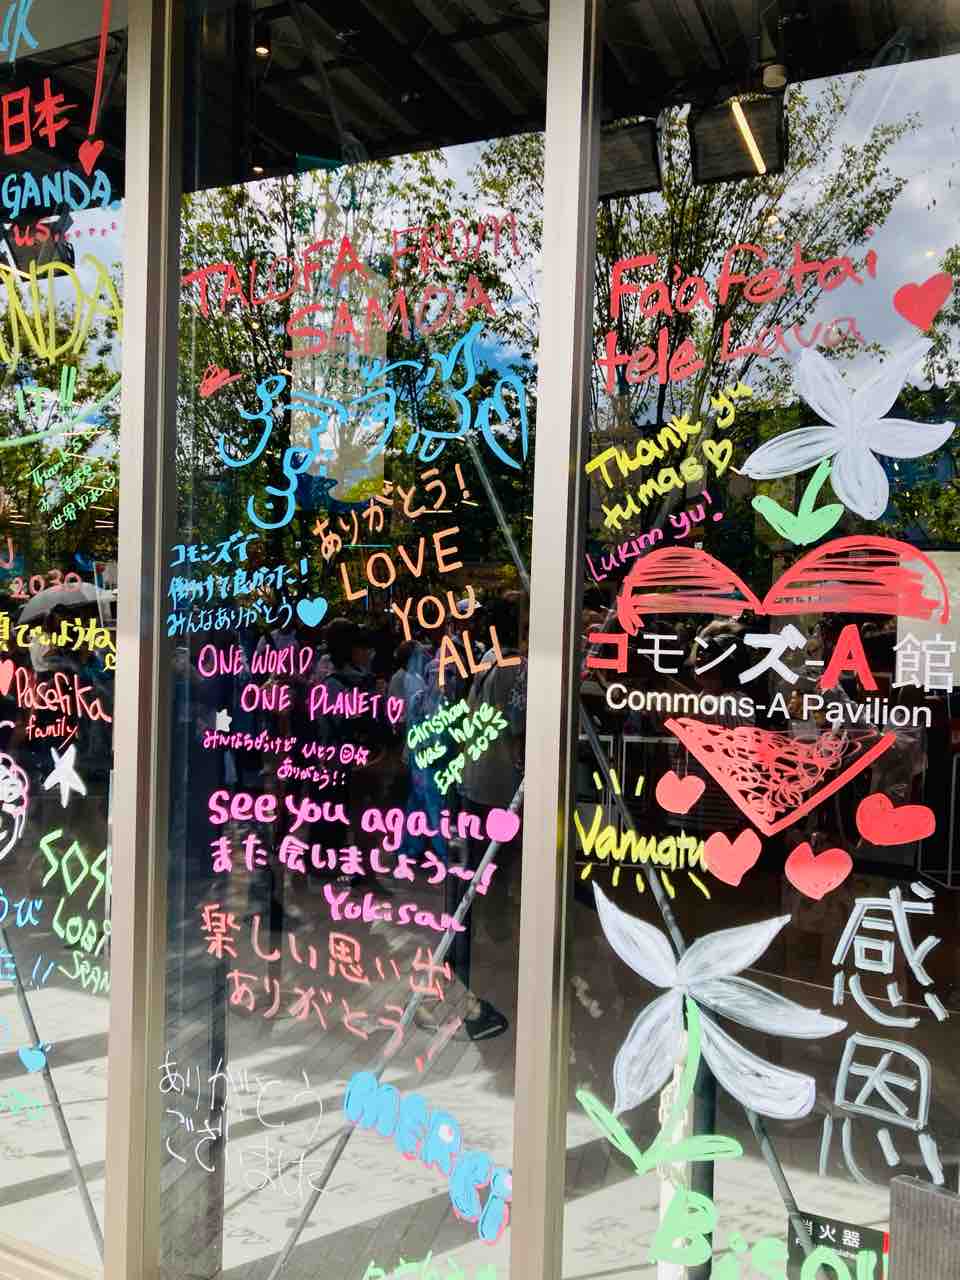 日本
GANDA.
US.......
NDA
Thank
世界平和
2030
Pasefika
family
SOS
LOBI
TALOFA FROM
SAMOA
ありがとう!
LOVE
YOU
ALL
コモンズで
働けて良かった!
みんなありがとう
ONE WORLD
ONE PLANET
christian
was here
Expo 2025
ありがとう!!
see you again
また会いましょう〜!
Yokisan
楽しい思い出
ありがとう
ありがとう
ございました
MERCi
Fa'afetai
tele Lava
Thank yu
tumas
Lukim yu!
コモンズ-A館
Commons-A Pavilion
Vanuatu
感
恩
消火器